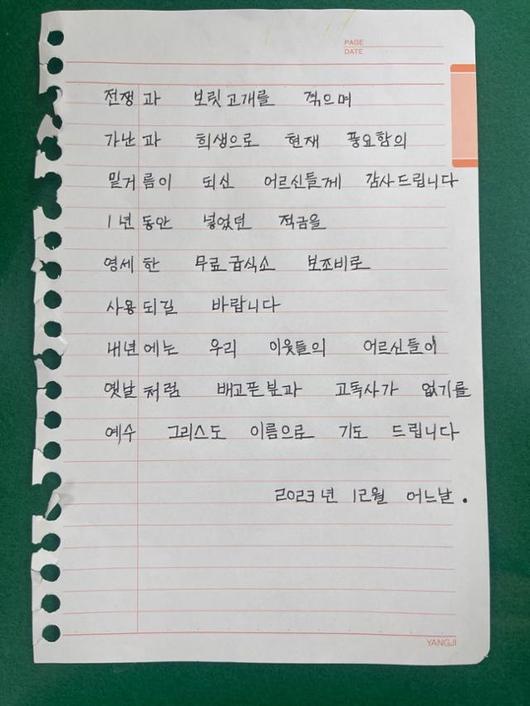 PAGE
DATE
전쟁과 보릿고개를 격으며
가난과 희생으로 현재 풍요함의
밑거름이 되신 어르신들게 감사드립니다
1년 동안 넣었던 적금을
영세한 무료급식소 보조비로
사용되길 바랍니다
내년에는 우리 이웃들의 어르신들이
옛날처럼 배고픈분과 고독사가 없기를
예수 그리스도 이름으로 기도 드립니다
2023년 12월 어느날.
YANGJI